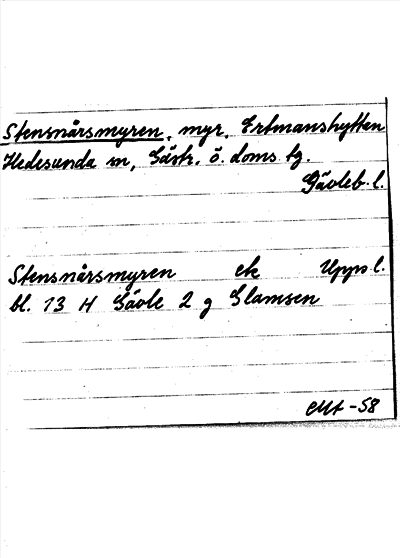 Stensnärsmyren, myr, Ertmanshyttan
Hedesunda sn, Gästr. ö. doms. tg.
Gävleb. l.
Stensnärsmyren ek Upps l.
bl. 13 H Gävle 2 g Glamsen
-58